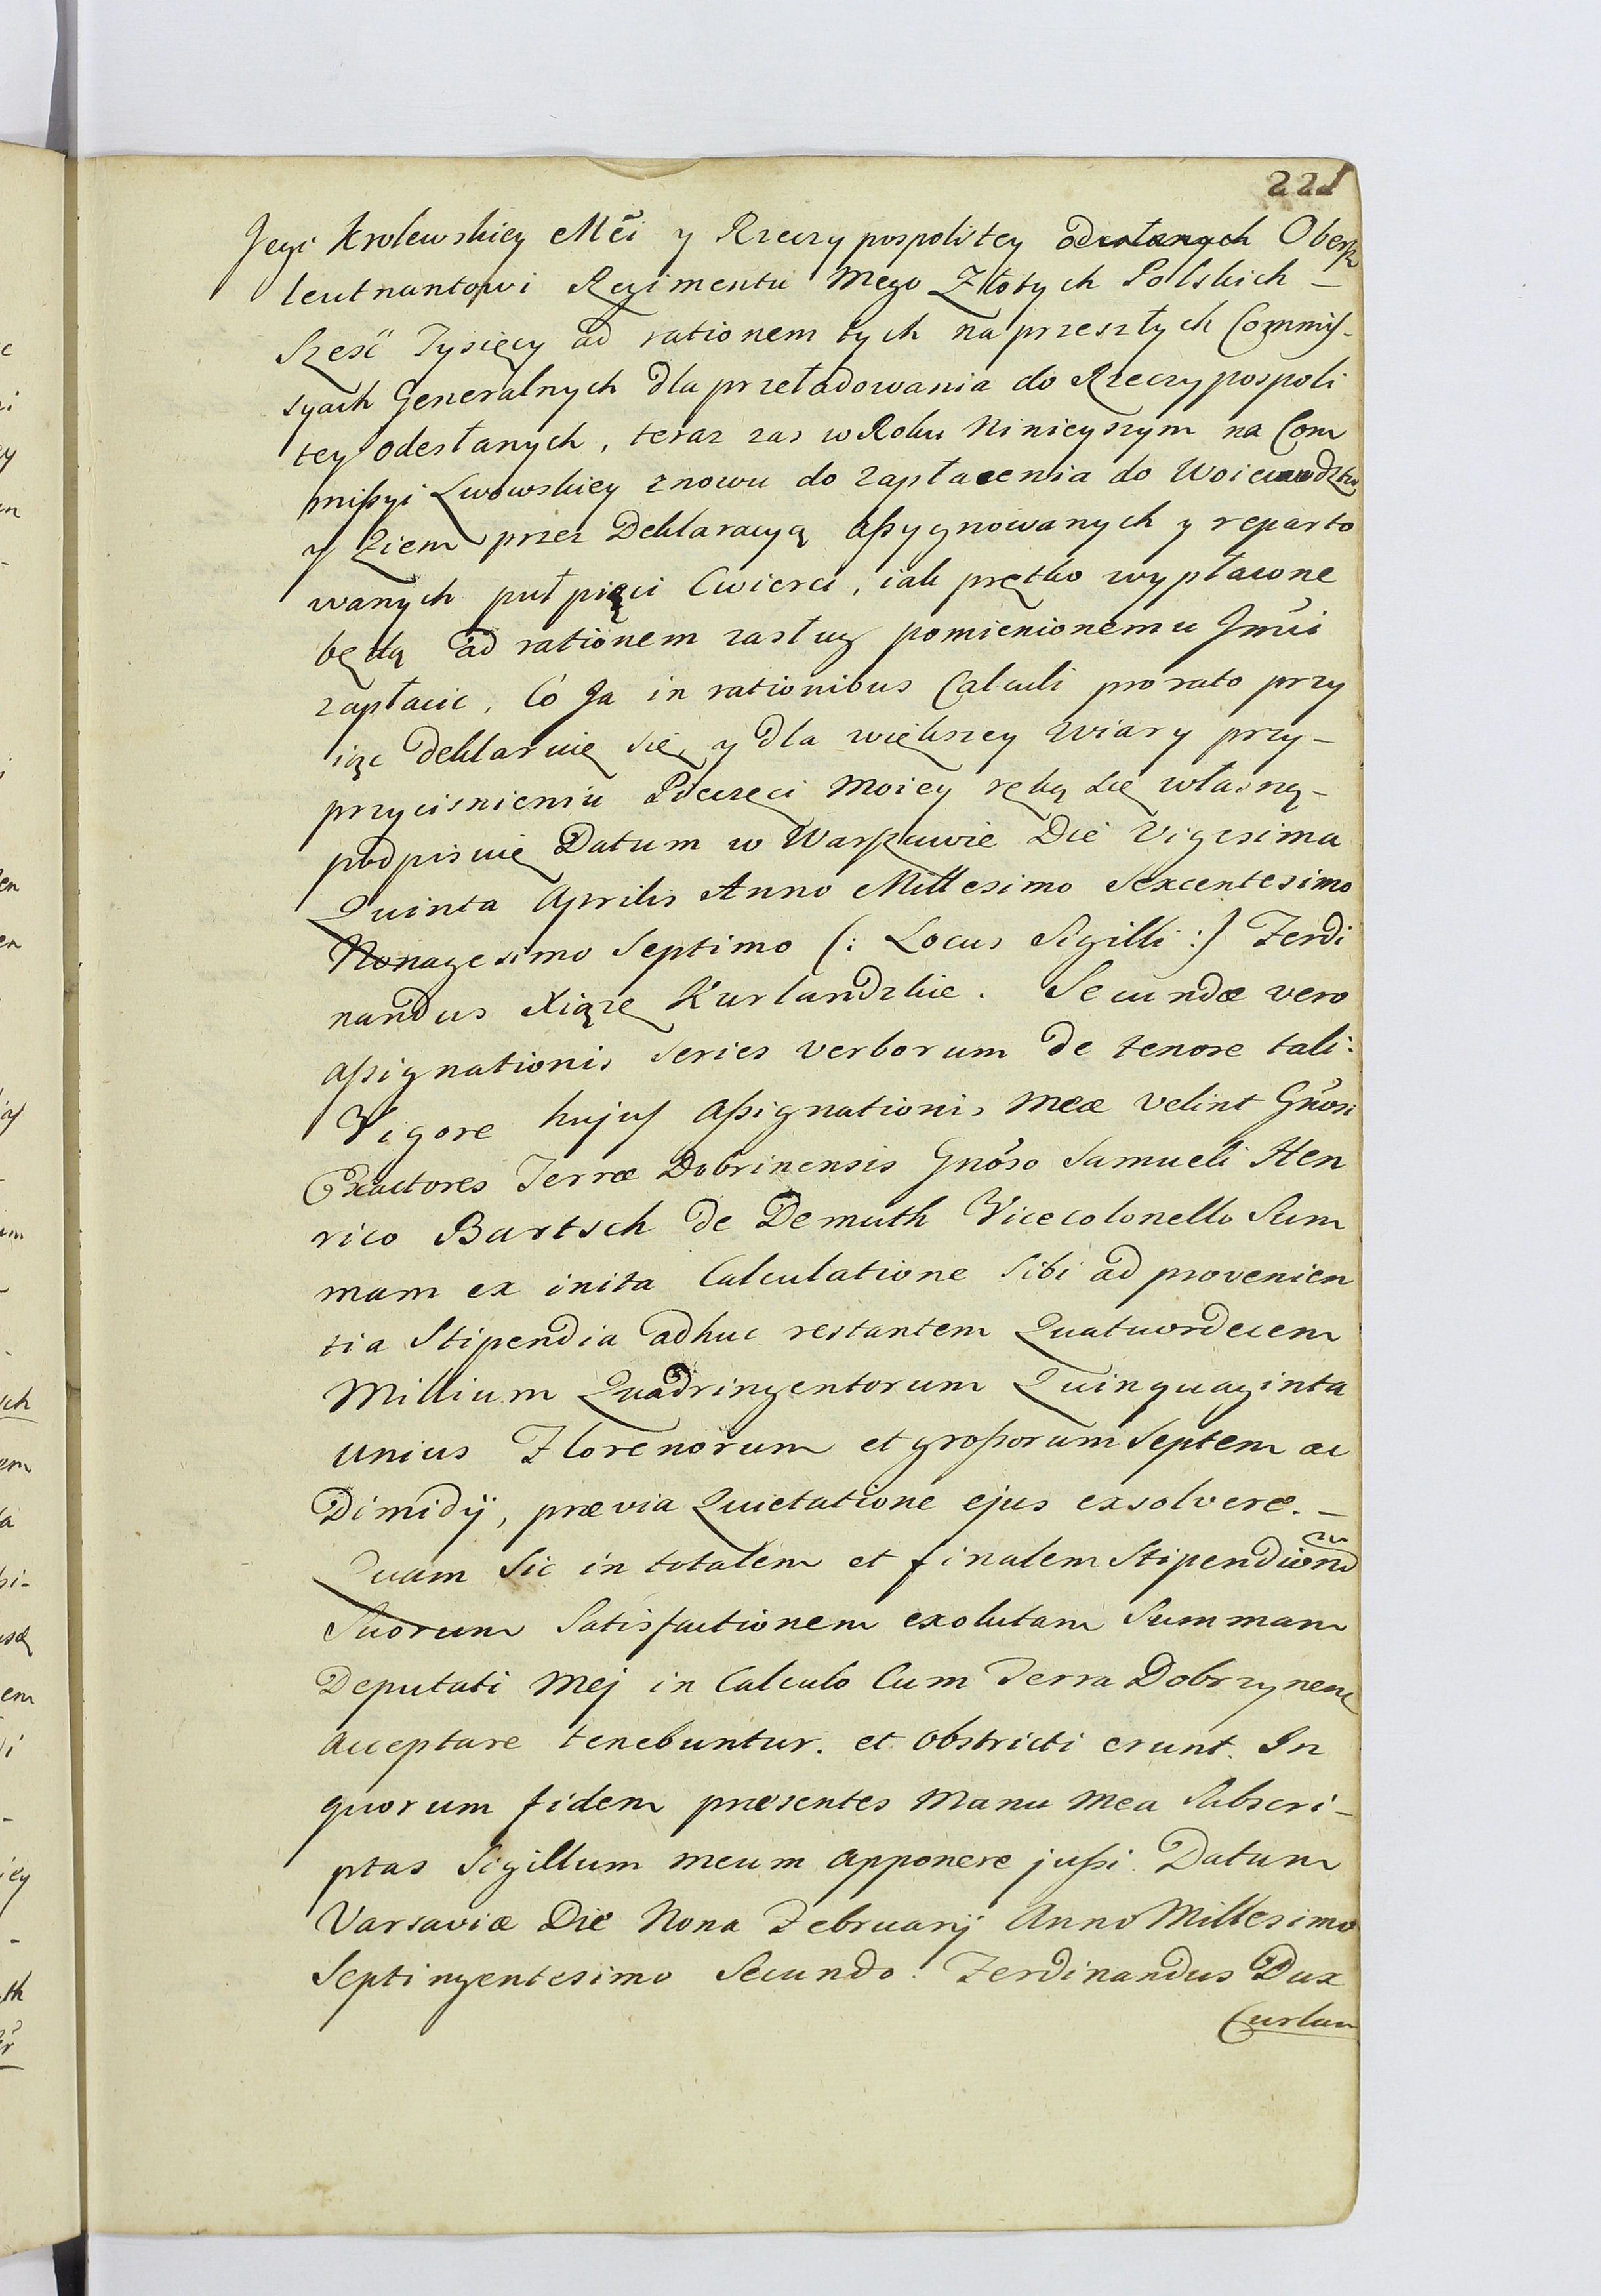 221
Jego Krolewskiey Mči y Rzeczypospolitey odesłanych Obersz
leutnantowi Regimentu Mego Złotych Polskich –
Szesć Tysięcy ad rationem tych na przeszłych Commis-
syach Generalnych dla przeładowania do Rzeczypospoli
tey odesłanych, teraz zas w Roku Ninieyszym na Com
missyi Lwowskiey znowu do zapłacenia do Woiewodztw
y Ziem przez Deklaracyą Assygnowanych y reparto
wanych puł pięci Cwierci, iak prętko wypłacone
będą ad rationem zasług pomienionemu Jmći
zapłacic, Co Ja in rationibus Calculi pro rato przy
iąc deklaruię się, y dla większey wiary przy-
przycisnieniu Pieczęci Moiey ręką się własną-
podpisuię Datum w Warszawie Die Vigesima
Quinta Aprilis Anno Millesimo Sexcentesimo
Nonagesimo Septimo (: Locus Sigilli :) Ferdi
nandus Xiąze Kurlandzkie. Secundæ vero
assignationis series verborum de tenore tali:
Vigore hujus Assignationis meæ velint Gnõsi
Exactores Terræ Dobrinensis Gnõso Samueli Hen
rico Bartsch de Demuth Vicecolonello Sum
mam ex inita Calculatione sibi ad provenien
tia Stipendia adhuc restantem Quatuordecem
Millium Quadringentorum Quinquaginta
unius Florenorum et grossorum Septem ac
Dimidÿ, prævia Quietatione ejus exsolvere. –
Quam sic in totalem et finalem Stipendiorũ
Suorum Satisfactionem exolutam Summam
Deputati Mej in Calculo Cum Terra Dobrzynen
acceptare tenebuntur. et obstricti erunt. In
quorum fidem præsentes Manu mea Subscri-
ptas Sigillum meum apponere jussi. Datum
Varsaviæ Die Nona Februarÿ Anno Millesimo
Septingentesimo Secundo. Ferdinandus Dux
Curlan